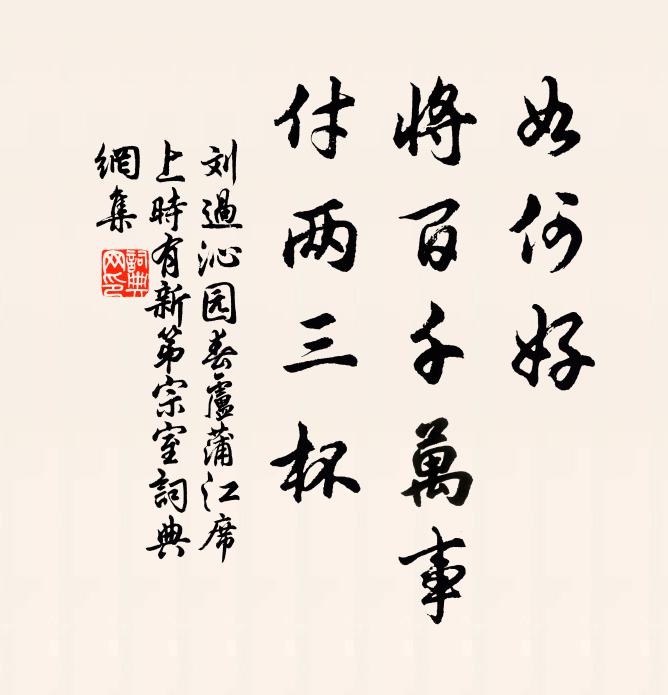 如何好
將百千萬事
付两三杯
刘過沁园春盧蒲江席
上時有新第宗室詞典
網集
詞典网印